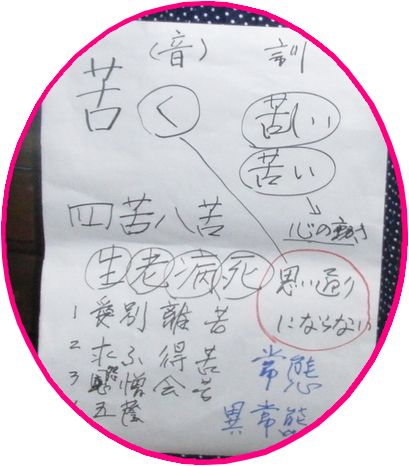 苦
(音) 訓
く 苦しい
苦い
心の動き
四苦八苦
生老病死 思い通り
にならない
1 愛別離苦
2 求不得苦
3 怨憎会苦
五蘊
常態
異常態